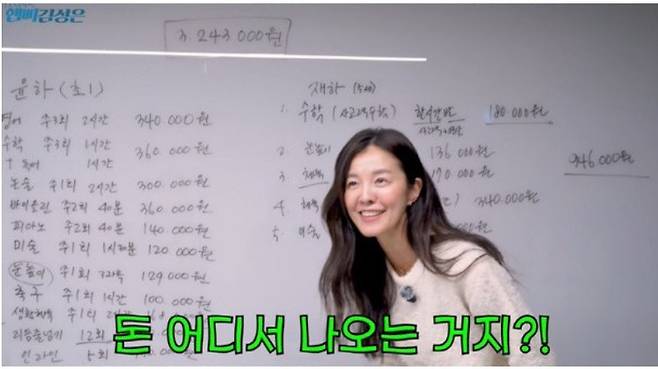 햅삐김성은
3.243.000원
윤하 (초1)
영어 주3회 2시간 340.000원
수학 주3회 1시간 360.000원
논술 주1회 2시간 300.000원
바이올린 주2회 40분 360.000원
피아노 주2회 40분 140.000원
미술 주1회 1시간30분 120.000원
눈높이 주1회 3과목 129.000원
축구 주1회 1시간 100.000원
생활체육 주1회
리듬줄넘기 12회
인라인 5회
재하 (5세)
1. 수학 (사고력수학) 한시간반 180.000원
2. 눈높이 136.000원
3. 70.000원
4. 340.000원
5. 미술
946.000원
돈 어디서 나오는 거지?!